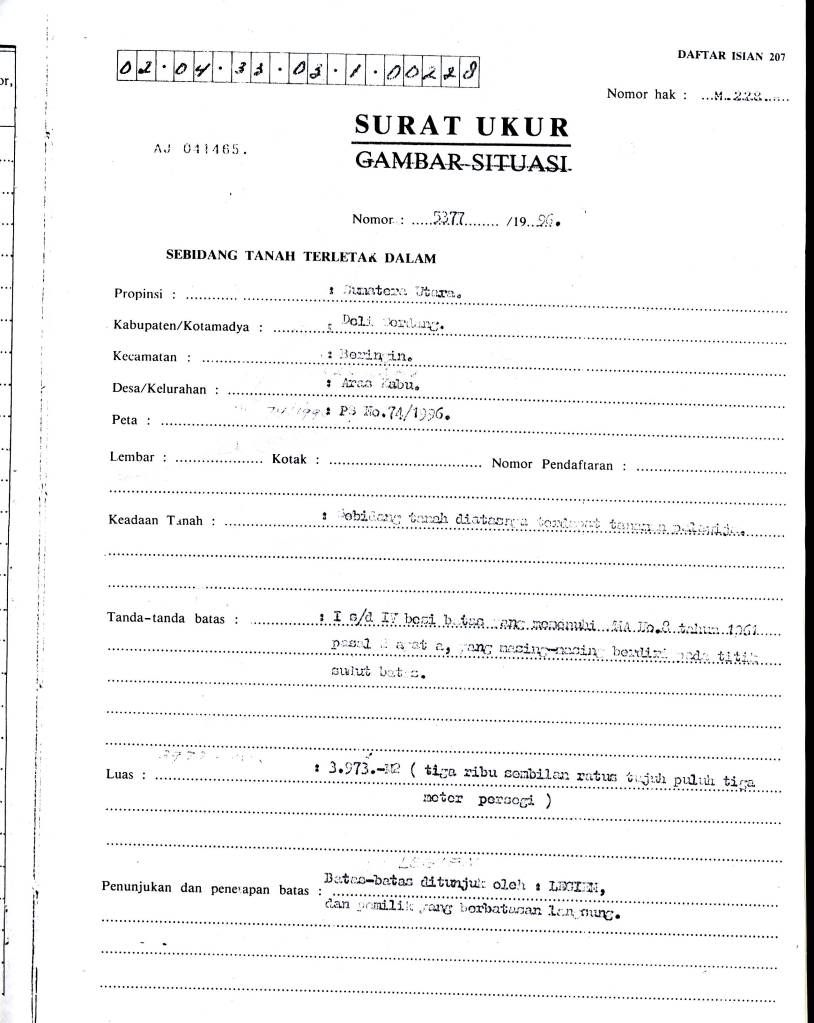 DAFTAR ISIAN 207
02.04.33.03.1.00228
Nomor hak : M.228
SURAT UKUR
AJ 041465.
GAMBAR SITUASI
Nomor : 5377 /19 96.
SEBIDANG TANAH TERLETAK DALAM
Propinsi : : Sumatera Utara.
Kabupaten/Kotamadya : : Deli Serdang.
Kecamatan : : Beringin.
Desa/Kelurahan : : Aras Kabu.
Peta : : PB No.74/1996.
Lembar : Kotak : Nomor Pendaftaran :
Keadaan Tanah : : Sebidang tanah diatasnya terdapat tanaman palawija.
Tanda-tanda batas : : I s/d IV besi batas yang memenuhi PMA No.8 tahun 1961
pasal ayat a, yang masing-masing berdiri pada titik
sudut batas.
Luas : : 3.973.-M2 ( tiga ribu sembilan ratus tujuh puluh tiga
meter persegi )
Penunjukan dan penetapan batas : Batas-batas ditunjuk oleh : LEGIEM,
dan pemilik yang berbatasan langsung.